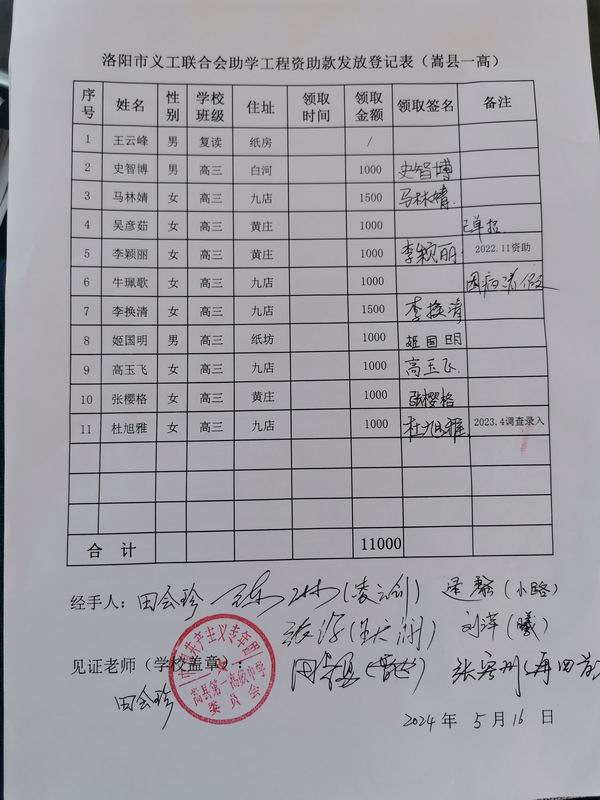 洛阳市义工联合会助学工程资助款发放登记表（嵩县一高）
序号 姓名 性别 学校班级 住址 领取时间 领取金额 领取签名 备注
1 王云峰 男 复读 纸房 /
2 史智博 男 高三 白河 1000 史智博
3 马林婧 女 高三 九店 1500 马林婧
4 吴彦茹 女 高三 黄庄 1000 已单招
5 李颖丽 女 高三 黄庄 1000 李颖丽 2022.11资助
6 牛珮歌 女 高三 九店 1000 因病请假
7 李换清 女 高三 九店 1500 李换清
8 姬国明 男 高三 纸坊 1000 姬国明
9 高玉飞 女 高三 九店 1000 高玉飞
10 张樱格 女 高三 黄庄 1000 张樱格
11 杜旭雅 女 高三 九店 1000 杜旭雅 2023.4调查录入
合 计 11000
经手人：田会珍 （小路）
刘萍（曦）
见证老师（学校盖章）：
田会珍
中国共产主义青年团
嵩县第一高级中学
委员会
2024年 5月16日